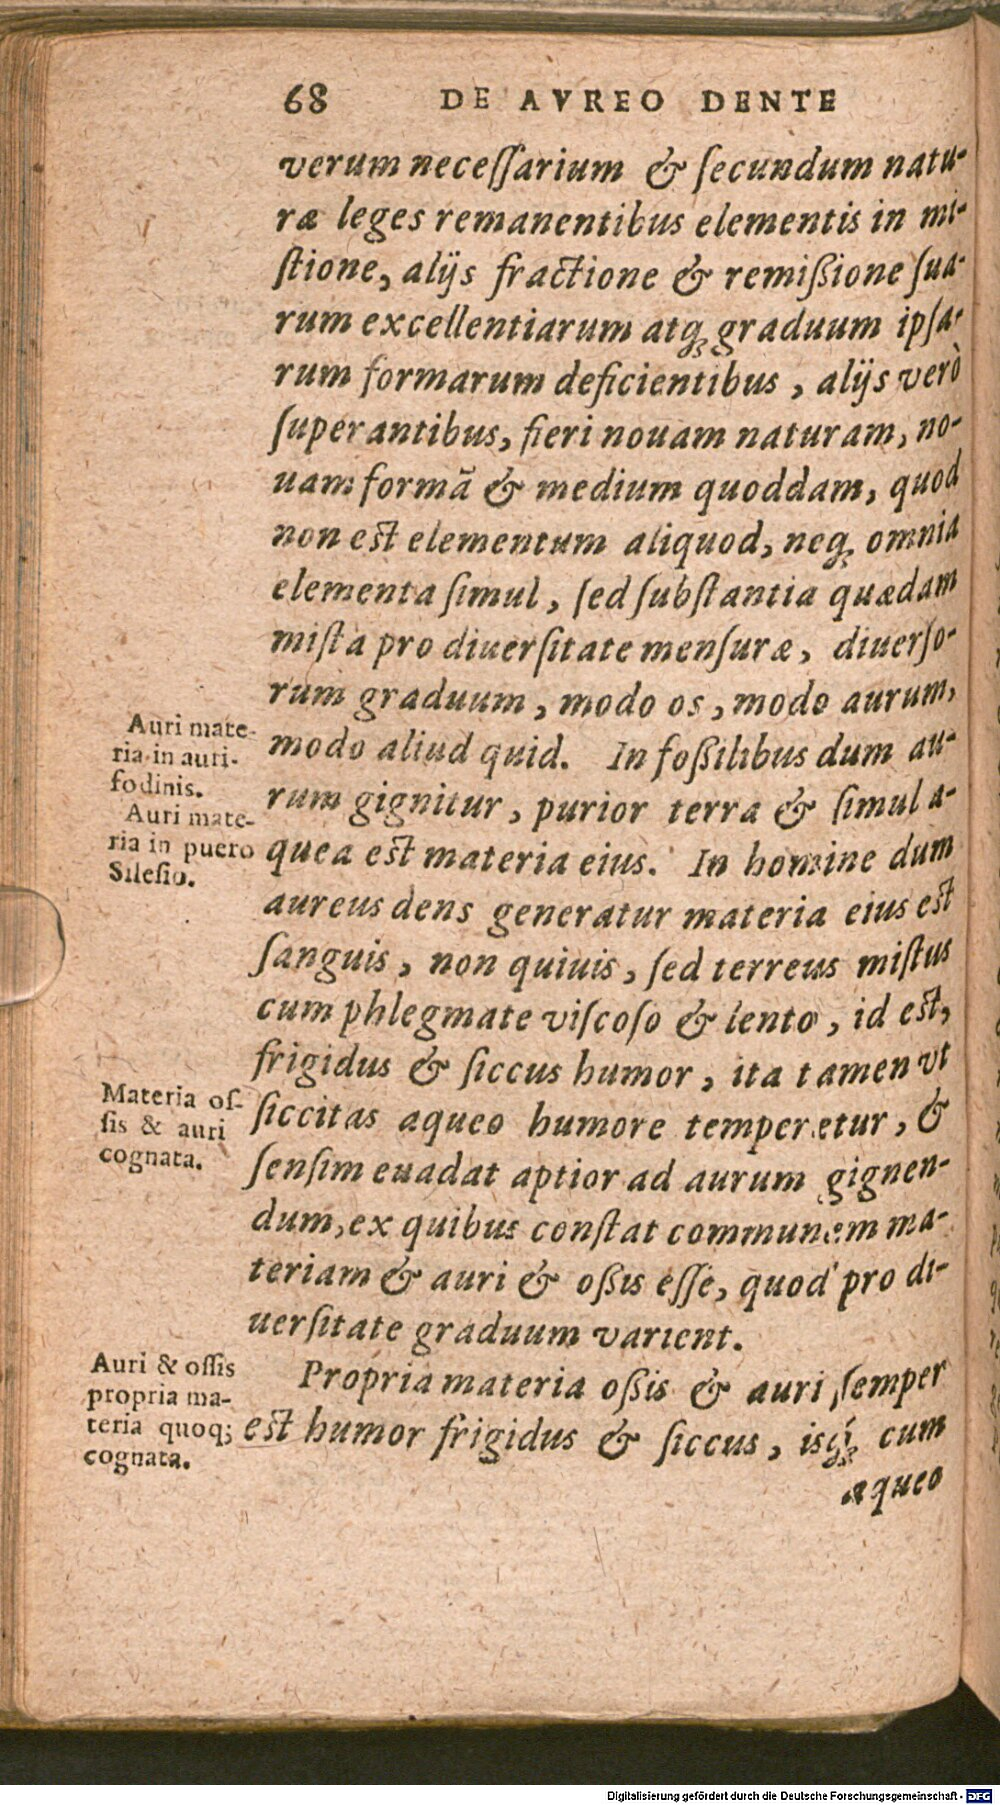 68 DE AVREO DENTE
verum neceſſarium & ſecundum natu-
ræ leges remanentibus elementis in mi-
ſtione, alijs fractione & remißione ſua-
rum excellentiarum atq; graduum ipſa-
rum formarum deficientibus, alijs verò
ſuperantibus, fieri nouam naturam, no-
uam formã & medium quoddam, quod
non est elementum aliquod, neq; omnia
elementa ſimul, ſed ſubſtantia quædam
miſta pro diuerſitate menſuræ, diuerſo-
rum graduum, modo os, modo aurum,
modo aliud quid. In foßilibus dum au-
rum gignitur, purior terra & ſimul a-
quea est materia eius. In homine dum
aureus dens generatur materia eius est
ſanguis, non quiuis, ſed terreus miſtus
cum phlegmate viſcoſo & lento, id est,
frigidus & ſiccus humor, ita tamen vt
ſiccitas aqueo humore temperetur, &
ſenſim euadat aptior ad aurum gignen-
dum, ex quibus conſtat communem ma-
teriam & auri & oßis eſſe, quod pro di-
uerſitate graduum varient.
Propria materia oßis & auri ſemper
est humor frigidus & ſiccus, isq́; cum
aqueo
Auri mate-
ria in auri-
fodinis.
Auri mate-
ria in puero
Sileſio.
Materia oſ-
ſis & auri
cognata.
Auri & oſſis
propria ma-
teria quoq;
cognata.
Digitalisierung gefördert durch die Deutsche Forschungsgemeinschaft - DFG